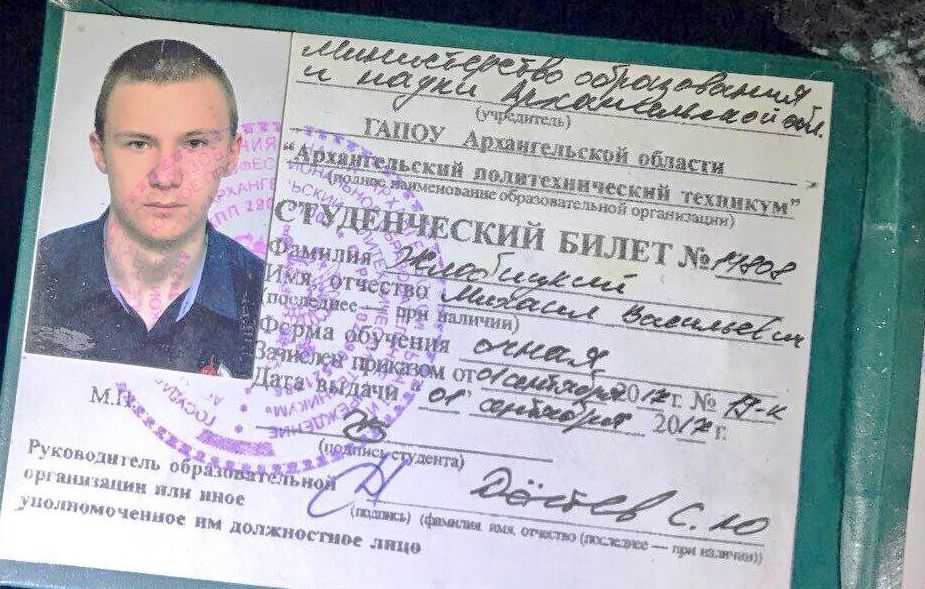 Министерство образования
и науки Архангельской обл.
(учредитель)
ГАПОУ Архангельской области
"Архангельский политехнический техникум"
(полное наименование образовательной организации)
СТУДЕНЧЕСКИЙ БИЛЕТ № 17808
Фамилия Жлобицкий
Имя, отчество Михаил Васильевич
(последнее — при наличии)
Форма обучения очная
Зачислен приказом от 01 сентября 2017 г. № 17-к
Дата выдачи 01 сентября 2017 г.
М.П.
(подпись студента)
Руководитель образовательной
организации или иное
уполномоченное им должностное лицо
С.Ю
(подпись) (фамилия, имя, отчество (последнее — при наличии))